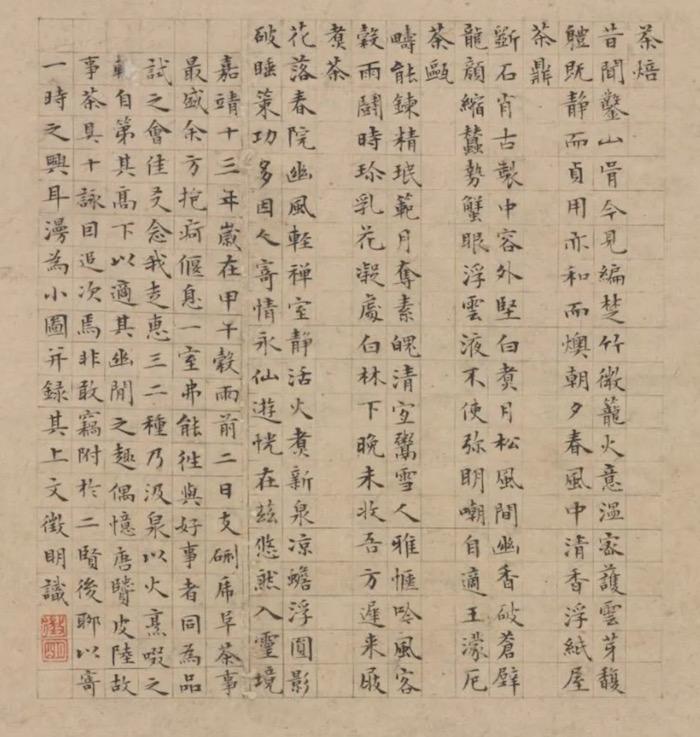 茶焙
昔聞鑿山骨今見編楚竹微籠火意溫密護雲芽馥
體既靜而貞用亦和而燠朝夕春風中清香浮紙屋
茶鼎
斲石肖古製中容外堅白煮月松風間幽香破蒼壁
龍頭縮蠢勢蟹眼浮雲液不使弥明嘲自適王濛厄
茶甌
疇能鍊精珉範月奪素魄清宜鬻雪人雅愜吟風客
穀雨鬪時珍乳花凝處白林下晚未收吾方遲来屐
煮茶
花落春院幽風輕禅室靜活火煮新泉凉蟾浮圓影
破睡策功多因人寄情永仙遊恍在兹悠然入靈境
嘉靖十三年歲在甲午穀雨前二日支硎虎阜茶事
最盛余方抱疴偃息一室弗能徃與好事者同為品
試之會佳友念我走惠三二種乃汲泉以火烹啜之
輙自第其高下以適其幽閒之趣偶憶唐賢皮陸故
事茶具十詠因追次焉非敢竊附於二賢後聊以寄
一時之興耳漫為小圖并録其上文徵明識
徵明